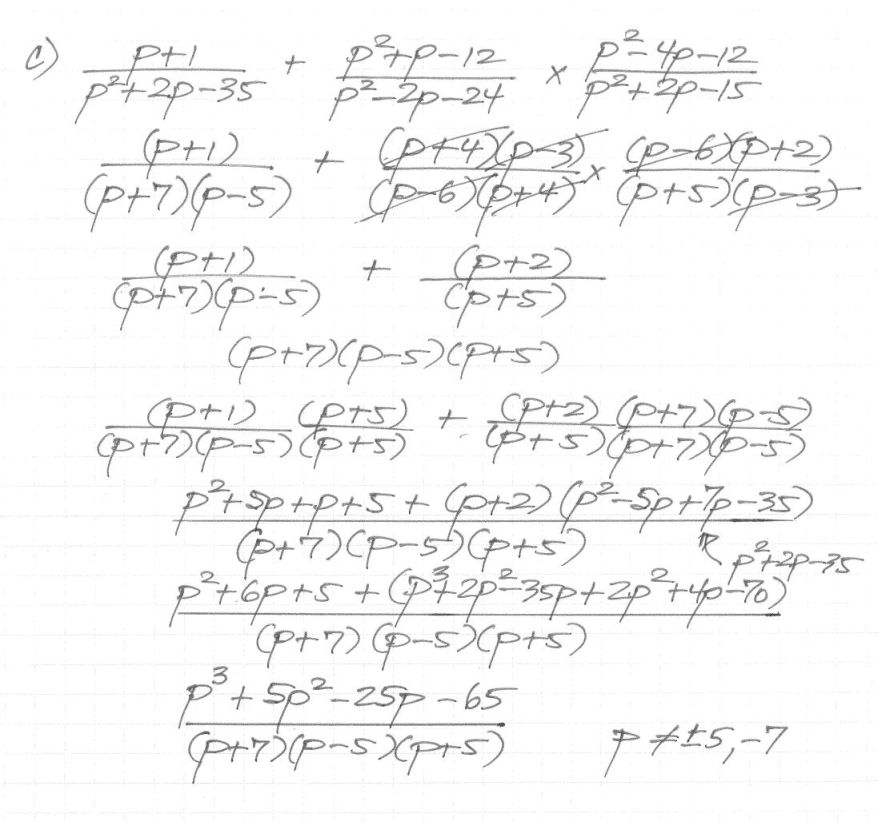 c) (p+1)/(p²+2p-35) + (p²+p-12)/(p²-2p-24) × (p²-4p-12)/(p²+2p-15)
(p+1)/((p+7)(p-5)) + ((p+4)(p-3))/((p-6)(p+4)) × ((p-6)(p+2))/((p+5)(p-3))
(p+1)/((p+7)(p-5)) + (p+2)/(p+5)
(p+7)(p-5)(p+5)
((p+1)(p+5))/((p+7)(p-5)(p+5)) + ((p+2)(p+7)(p-5))/((p+5)(p+7)(p-5))
(p²+5p+p+5+(p+2)(p²-5p+7p-35))/((p+7)(p-5)(p+5))
p²+2p-35
(p²+6p+5+(p³+2p²-35p+2p²+4p-70))/((p+7)(p-5)(p+5))
(p³+5p²-25p-65)/((p+7)(p-5)(p+5)) p≠±5,-7